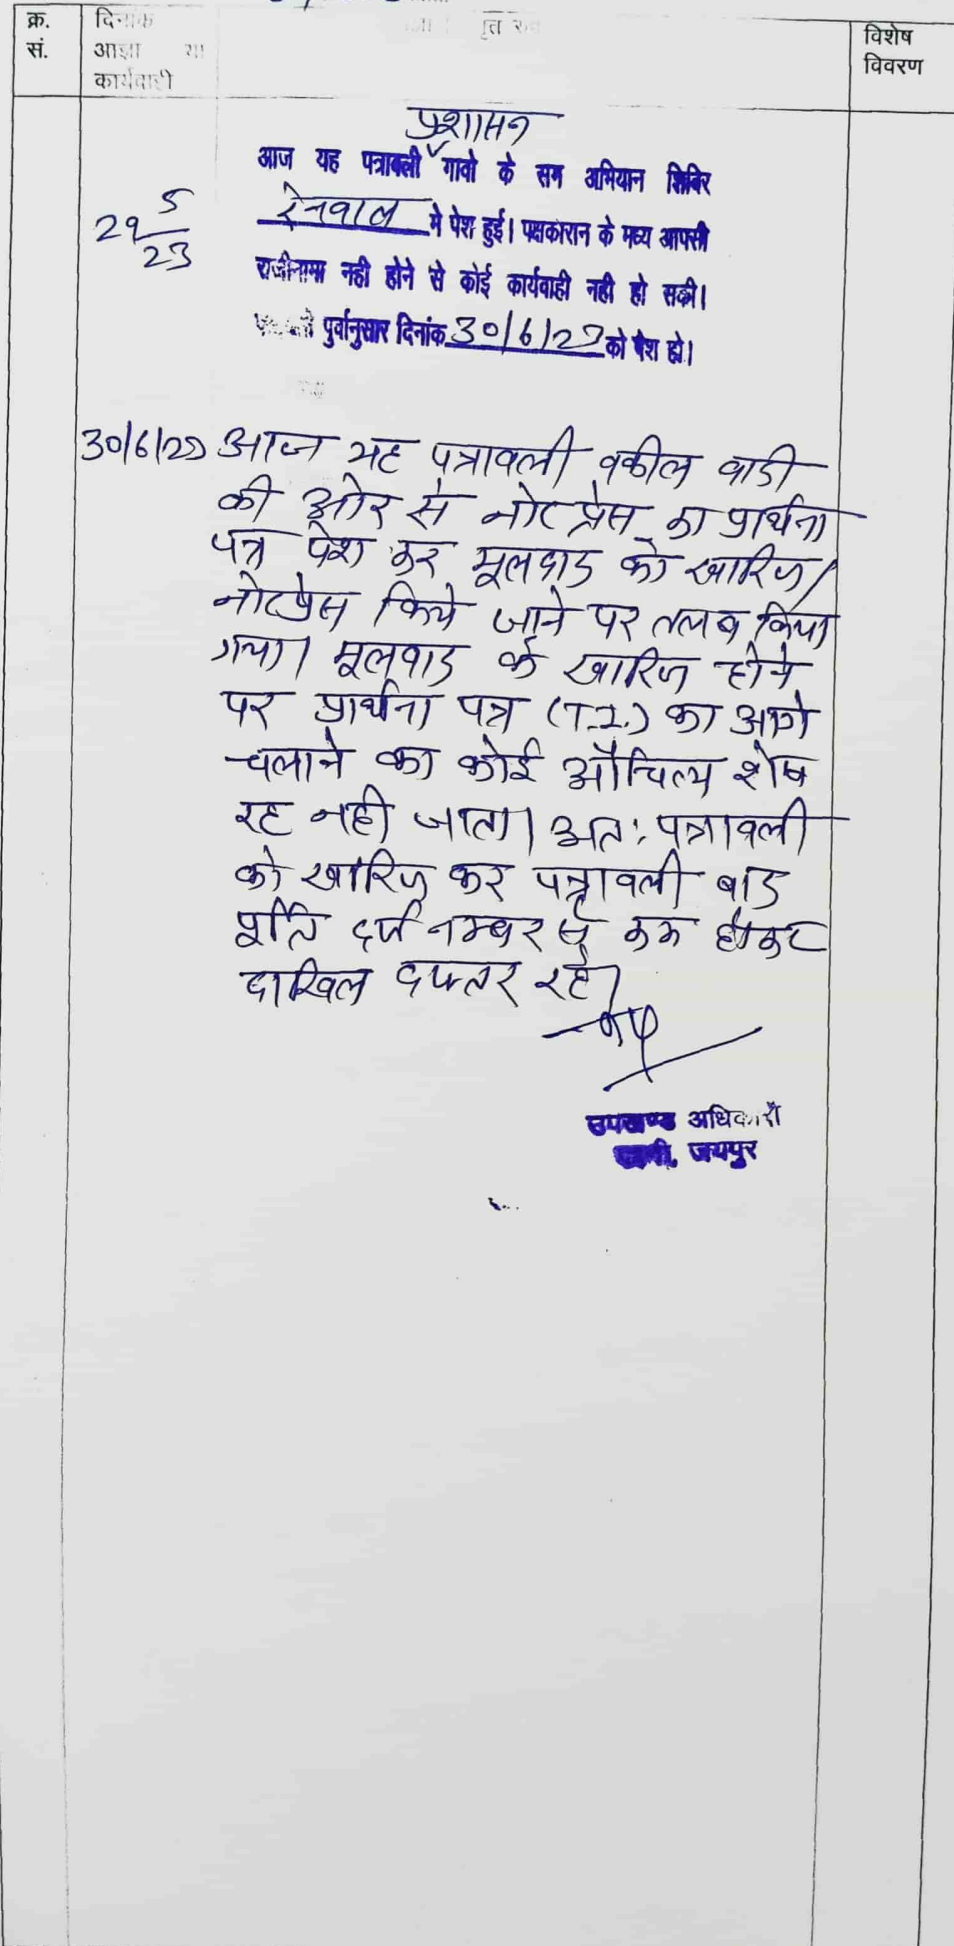 क्र.
सं.
दिनांक
आज्ञा या
कार्यवाही
विशेष
विवरण
प्रशासन
आज यह पत्रावली गावो के सग अभियान शिविर
29/5/23
रेनवाल मे पेश हुई। पक्षकारान के मध्य आपसी
राजीनामा नही होने से कोई कार्यवाही नही हो सकी।
पुर्वानुसार दिनांक 30/6/23 को पेश हो।
30/6/23 आज यह पत्रावली वकील वादी
की ओर से नोटप्रेस का प्रार्थना
पत्र पेश कर मूलवाद को खारिज/
नोटप्रेस किये जाने पर तलब किया
गया। मूलवाद के खारिज होने
पर प्रार्थना पत्र (T.I.) का आगे
चलाने का कोई औचित्य शेष
रह नही जाता। अतः पत्रावली
को खारिज कर पत्रावली बाद
दर्ज नम्बर से कम होकर
दाखिल दफ्तर रहे।
उपखण्ड अधिकारी
जयपुर